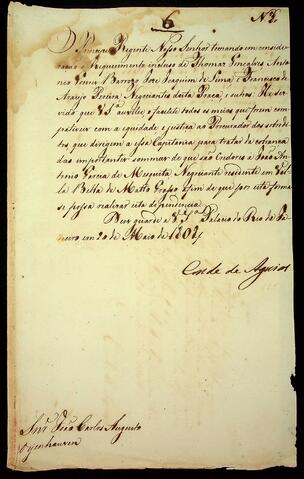 6
N.º
O Principe Regente Nosso Senhor tomando em conside-
ração o Requerimento incluso de Thomas Gonçalves, Antonio
Gomes Barrozo, Joze Joaquim de Lima e Francisco de
Araujo Pereira Negociantes desta Praça, e outros: He ser-
vido que V S.ª auxilie, e facilite todos os meios que forem com-
pativeis com a equidade e justiça ao Procurador dos sobredi-
tos, que dirigem a essa Capitania para tratar da cobrança
das importantes sommas de que são Credores a João An-
tonio Garcia de Mesquita Negociante residente em Vil-
la Bella de Matto Grosso afim de que por esta forma
se possa realizar esta dependencia.
Deos guarde a V S.ª Palacio do Rio de Ja-
neiro em 20 de Maio de 1809
Conde de Aguiar
Snr. João Carlos Augusto
Oyenhausen